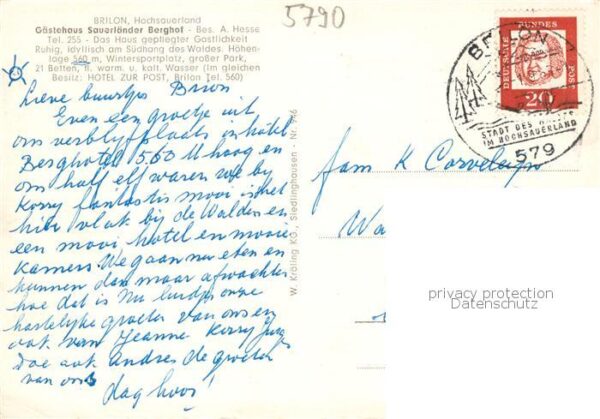 5790
BRILON, Hochsauerland
Gästehaus Sauerländer Berghof - Bes. A. Hesse
Tel. 255 - Das Haus gepflegter Gastlichkeit
Ruhig, idyllisch am Südhang des Waldes. Höhen-
lage 560 m, Wintersportplatz, großer Park,
21 Betten, B. warm. u. kalt. Wasser (Im gleichen
Besitz: HOTEL ZUR POST, Brilon Tel. 560)
Lieve buurtjes Brilon
Even een groetje uit
ons verblyfplaats in hôtel
Berghotel 560 M hoog en
om half elf waren we by
Korry fantastis mooi is het
hier vlak bij de Walden en
een mooi hotel en mooie
kamers We gaan nu eten en
kunnen dan maar afwachten
hoe dat is Nu luidjes onze
hartelijke groeten van ons en
ook van Jeanne Korry
doe ook andres de groeten
van ons
dag hoor!
W. Kröling KG., Siedlinghausen - Nr. 746
fam K Corveleyn
Wa
DEUTSCHE BUNDES POST
20
BRILON
STADT DES WALDES
IM HOCHSAUERLAND
579
privacy protection
Datenschutz